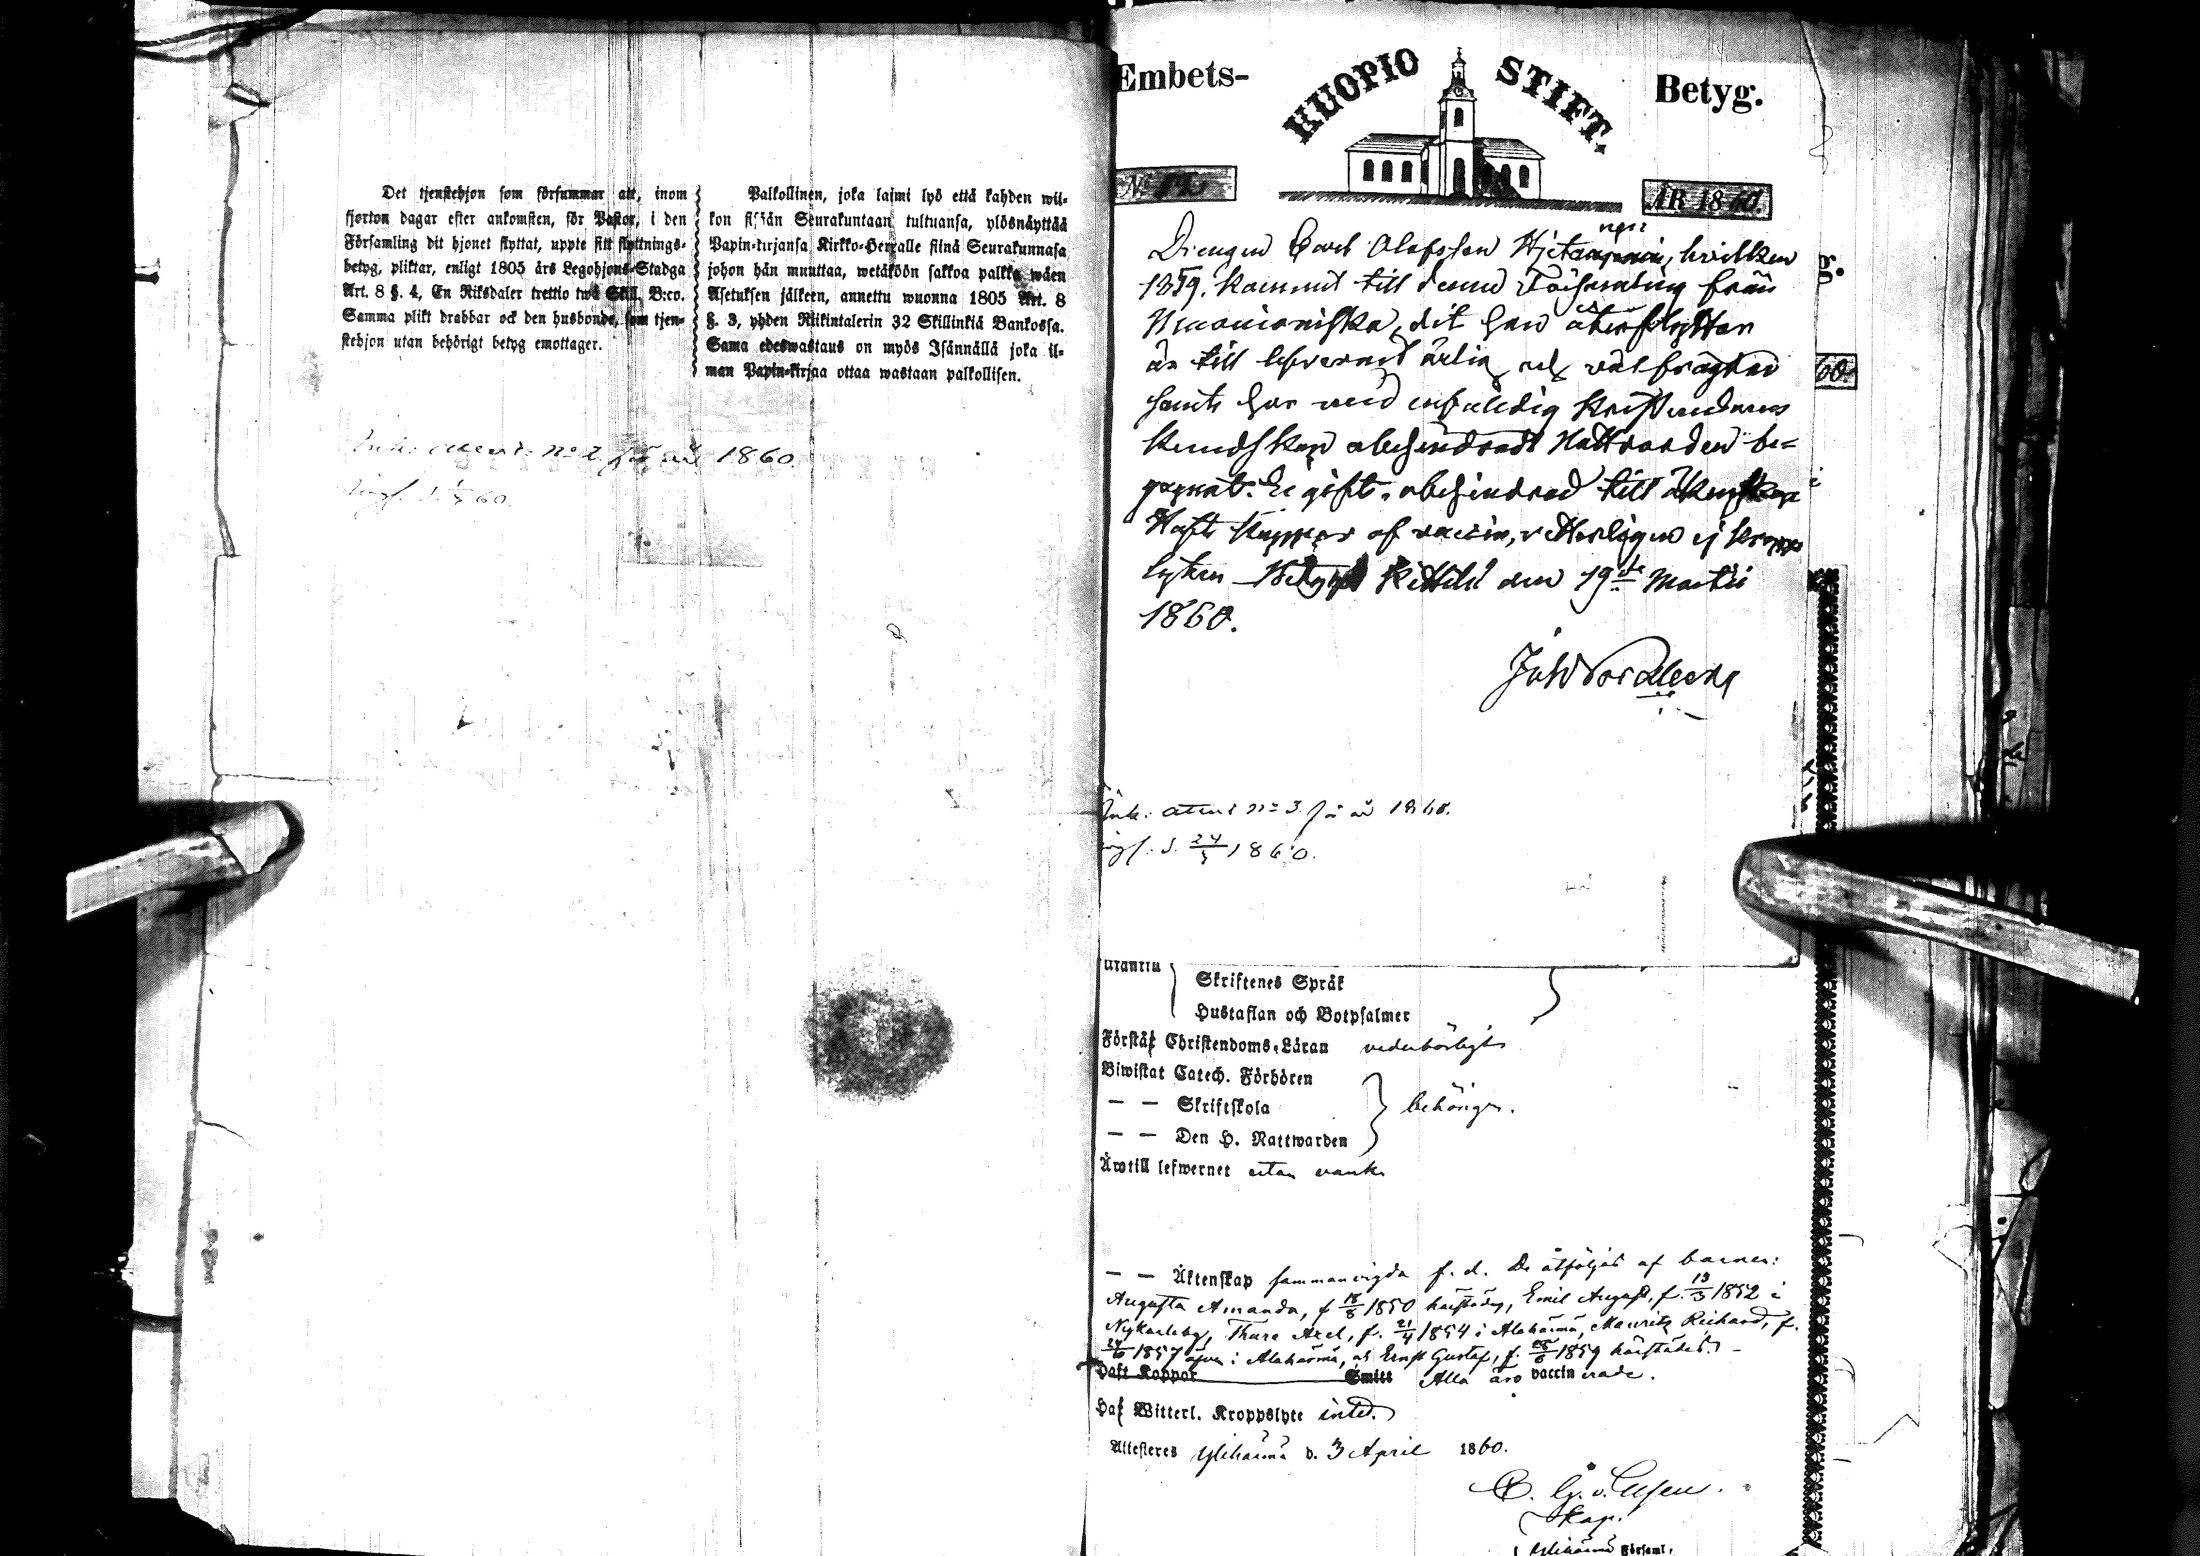 Det tjenstehjon som försummar att, inom
fjorton dagar efter ankomsten, för Pastor, i den
Församling dit hjonet flyttat, uppte sitt flyttnings-
betyg, pliktar, enligt 1805 års Legohjons-Stadga
Art. 8 §. 4, En Riksdaler trettio två Skill. B:co.
Samma plikt drabbar ock den husbonde, som tjen-
stehjon utan behörigt betyg emottager.
Palkollinen, joka laimi lyö että kahden wii-
kon sisään Seurakuntaan tultuansa, ylösnäyttää
Papin-kirjansa Kirkko-Herralle siinä Seurakunnasa
johon hän muuttaa, wetäköön sakkoa palkka wäen
Asetuksen jälkeen, annettu wuonna 1805 Art. 8
§. 3, yhden Riikintalerin 32 Skillinkiä Bankossa.
Sama edeswastaus on myös Isännällä joka il-
man Papin-kirjaa ottaa wastaan palkollisen.
Ink. attest. No 2 för år 1860.
60.
Embets- KUOPIO STIFT. Betyg.
No ÅR 1860.
Drengen Carl Olofsson hvilken
1859. kommit till denna Församling från
Muonioniska, dit han återflyttar
är till lefvernet ärlig och väl frägdad
samt har med enfaldig Kristendoms
kundskap obehindradt Nattvarden be-
gagnat. Ej gift, obehindrad till äktenskap
Haft koppor af vaccin, veterligen ej kropps
lyten Betygar Kittilä den 19de Martii
1860.
Ink: attest No 3 för år 1860.
d. 24/5 1860.
60.
Skriftenes Språk
Hustaflan och Botpsalmer
Förstå Christendoms-Läran vederbörligt
Biwistat Catech. Förhören
— — Skriftskola behörigen.
— — Den H. Nattwarden
Äro till lefwernet utan vank
— — Äktenskap sammanvigda f. d. De åtföljas af barnen:
Augusta Amanda, f 18/8 1850 härstädes, Emil August, f. 13/3 1852 i
Nykarleby, Thure Axel, f. 21/4 1854 i Alahärmä, Mauritz Richard, f.
1857 även i Alahärmä, och Ernst Gustaf, f. 1859 härstädes. –
Haft Koppor Smitt Alla äro vaccinerade.
Haf Witterl. Kroppslyte intet.
Attesteres Ylihärmä d. 3 April 1860.
Kap.
Ylihärmä Församl.